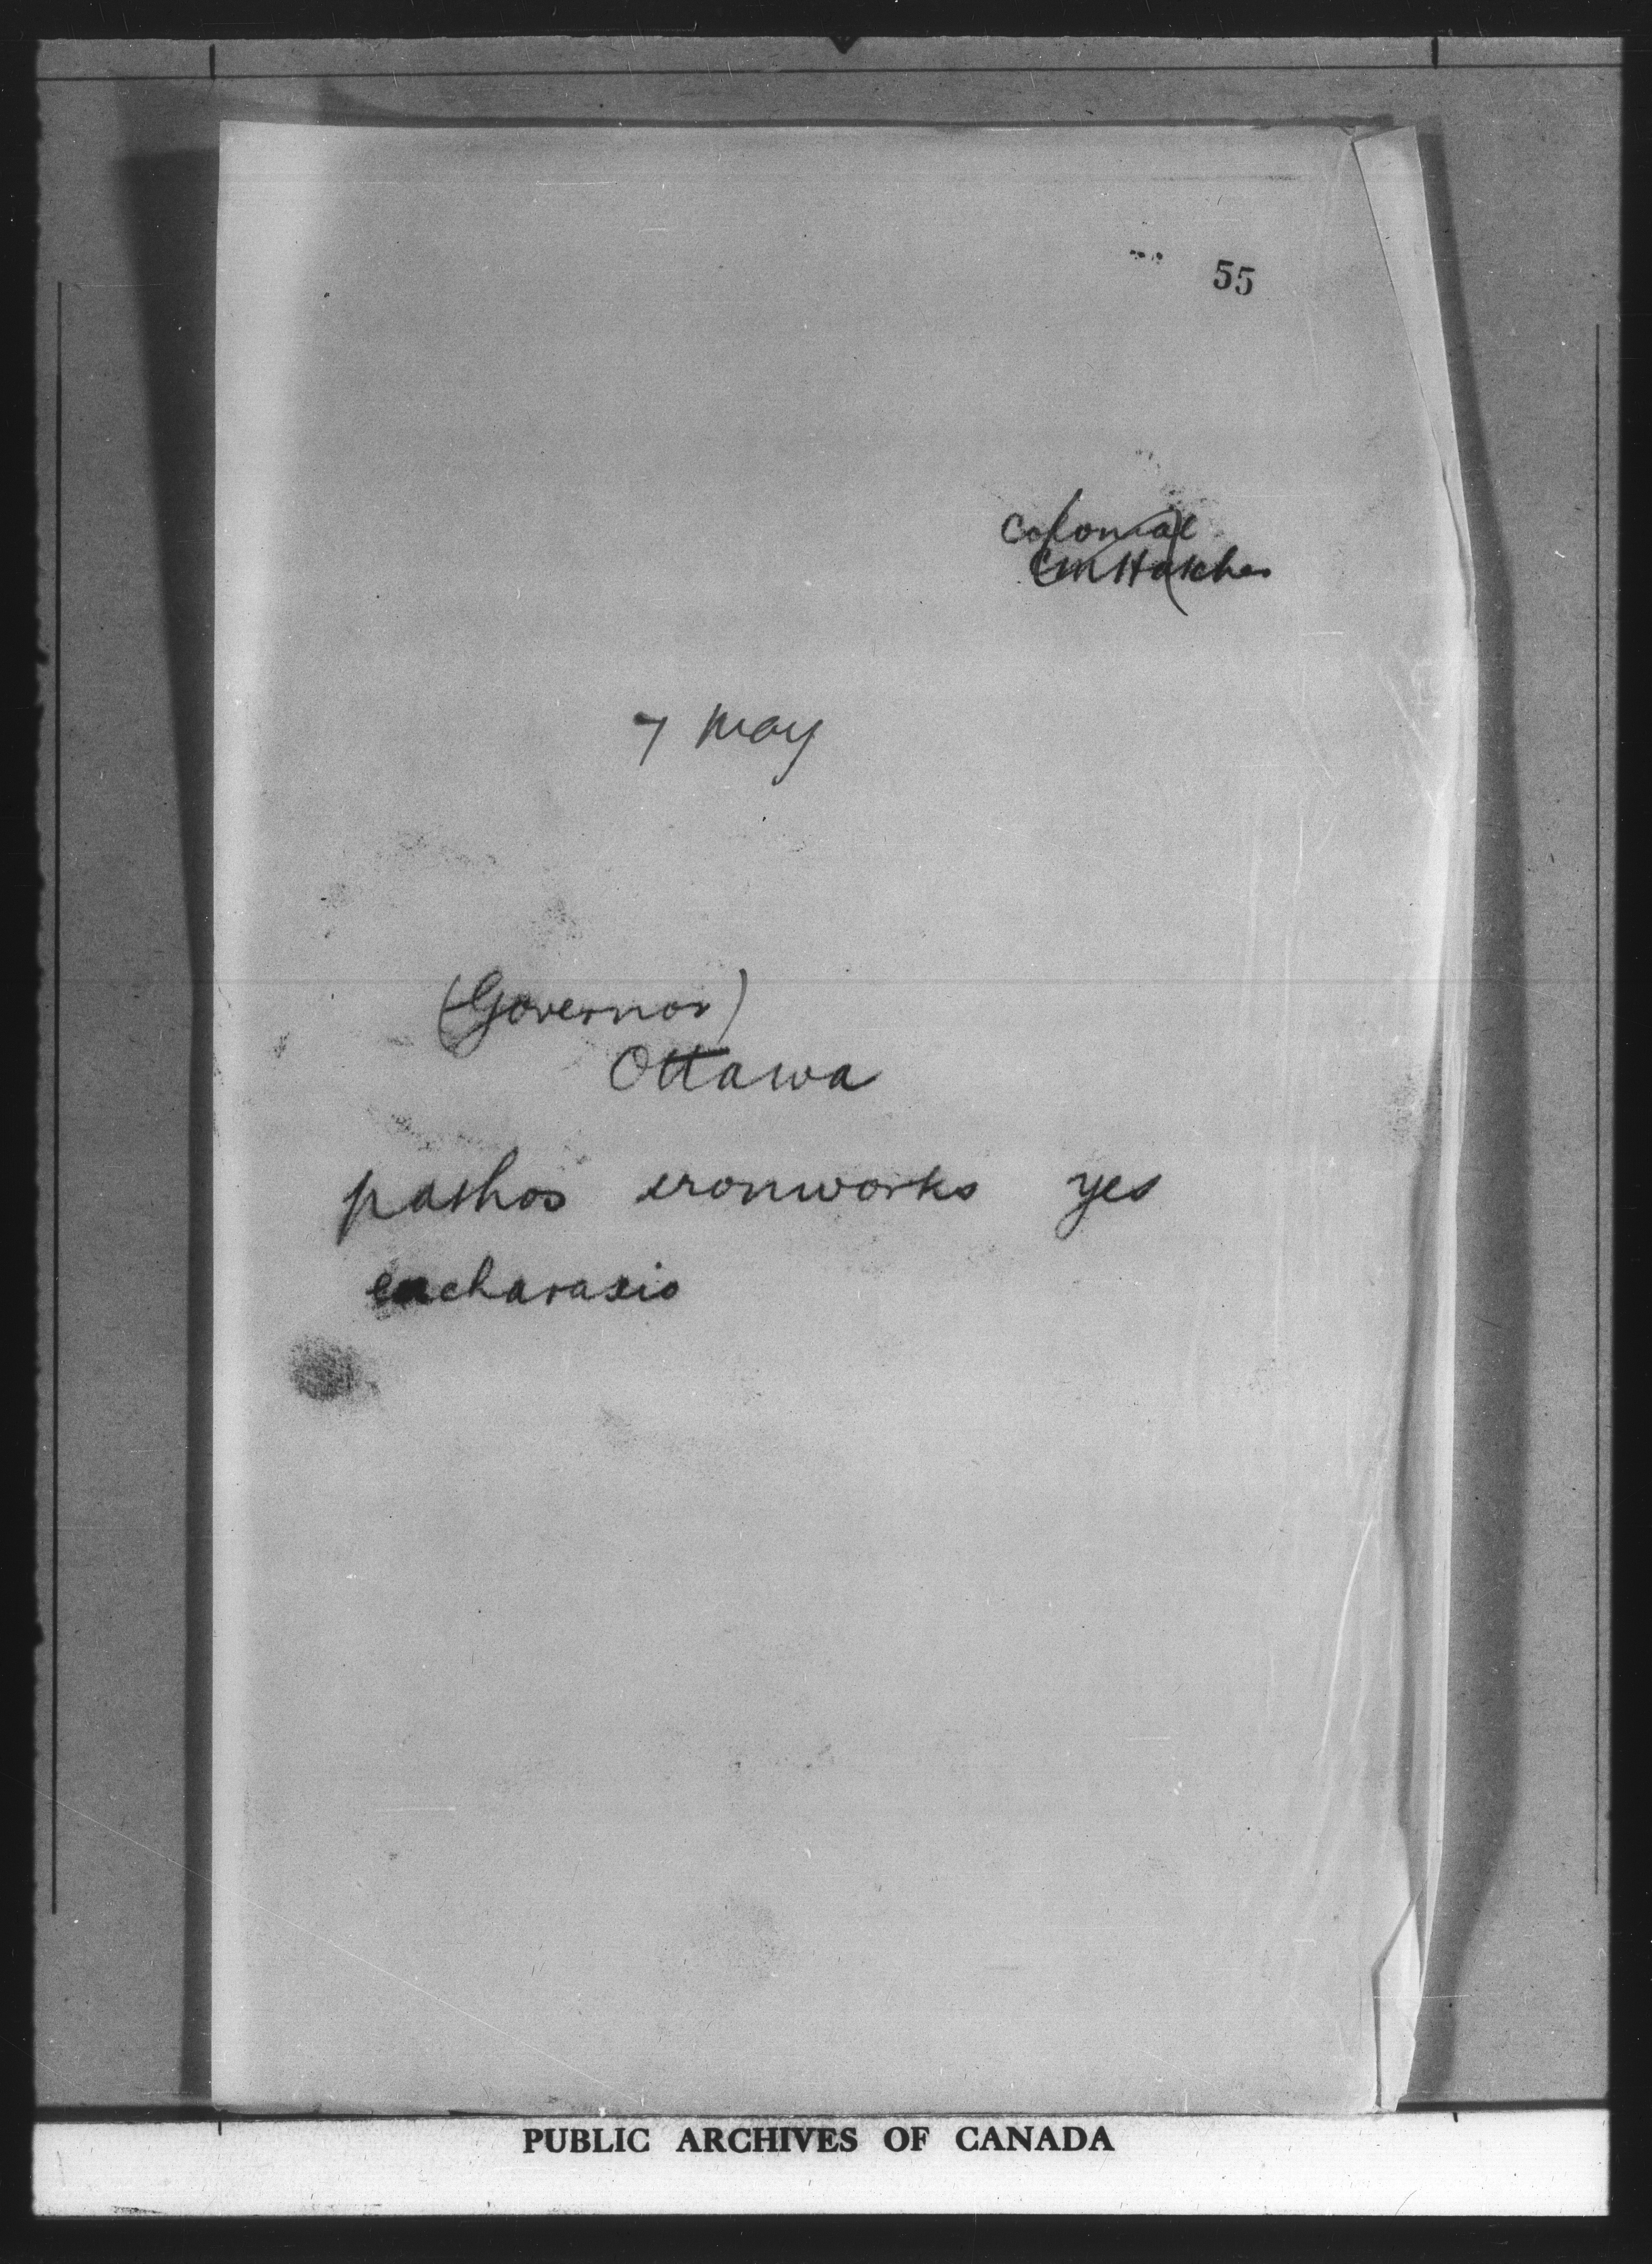 55
Colonial
7 May
(Governor)
Ottawa
pathos ironworks yes
encharaxis
PUBLIC ARCHIVES OF CANADA